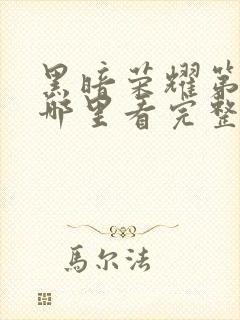 黑暗荣耀第
哪里看完整
馬尔法